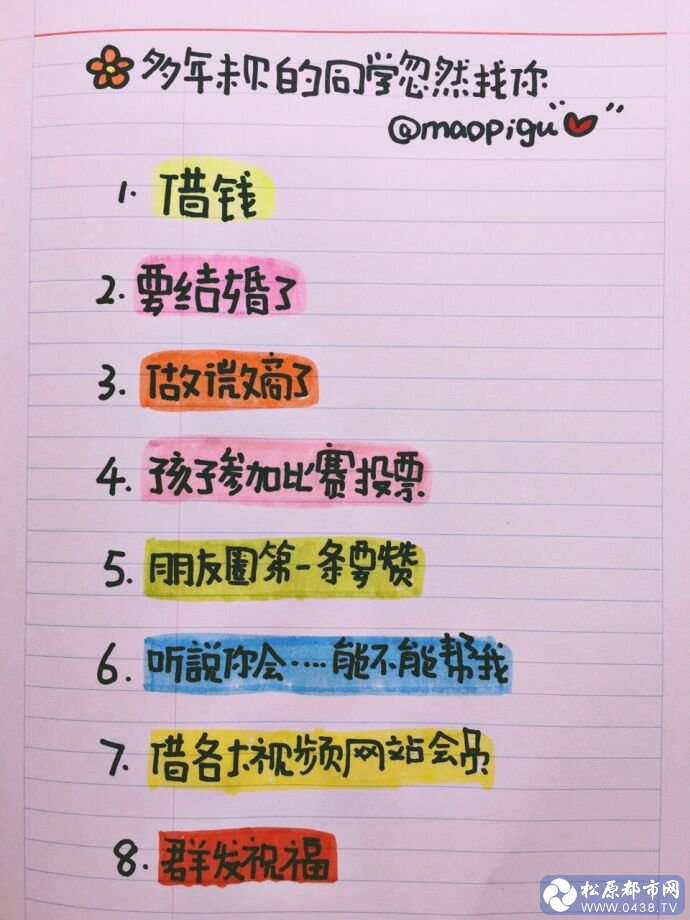 多年未见的同学忽然找你
@maopigu
1. 借钱
2. 要结婚了
3. 做微商了
4. 孩子参加比赛投票
5. 朋友圈第一条要赞
6. 听説你会·····能不能帮我
7. 借各大视频网站会员
8. 群发祝福
松原都市网
www.0438.TV